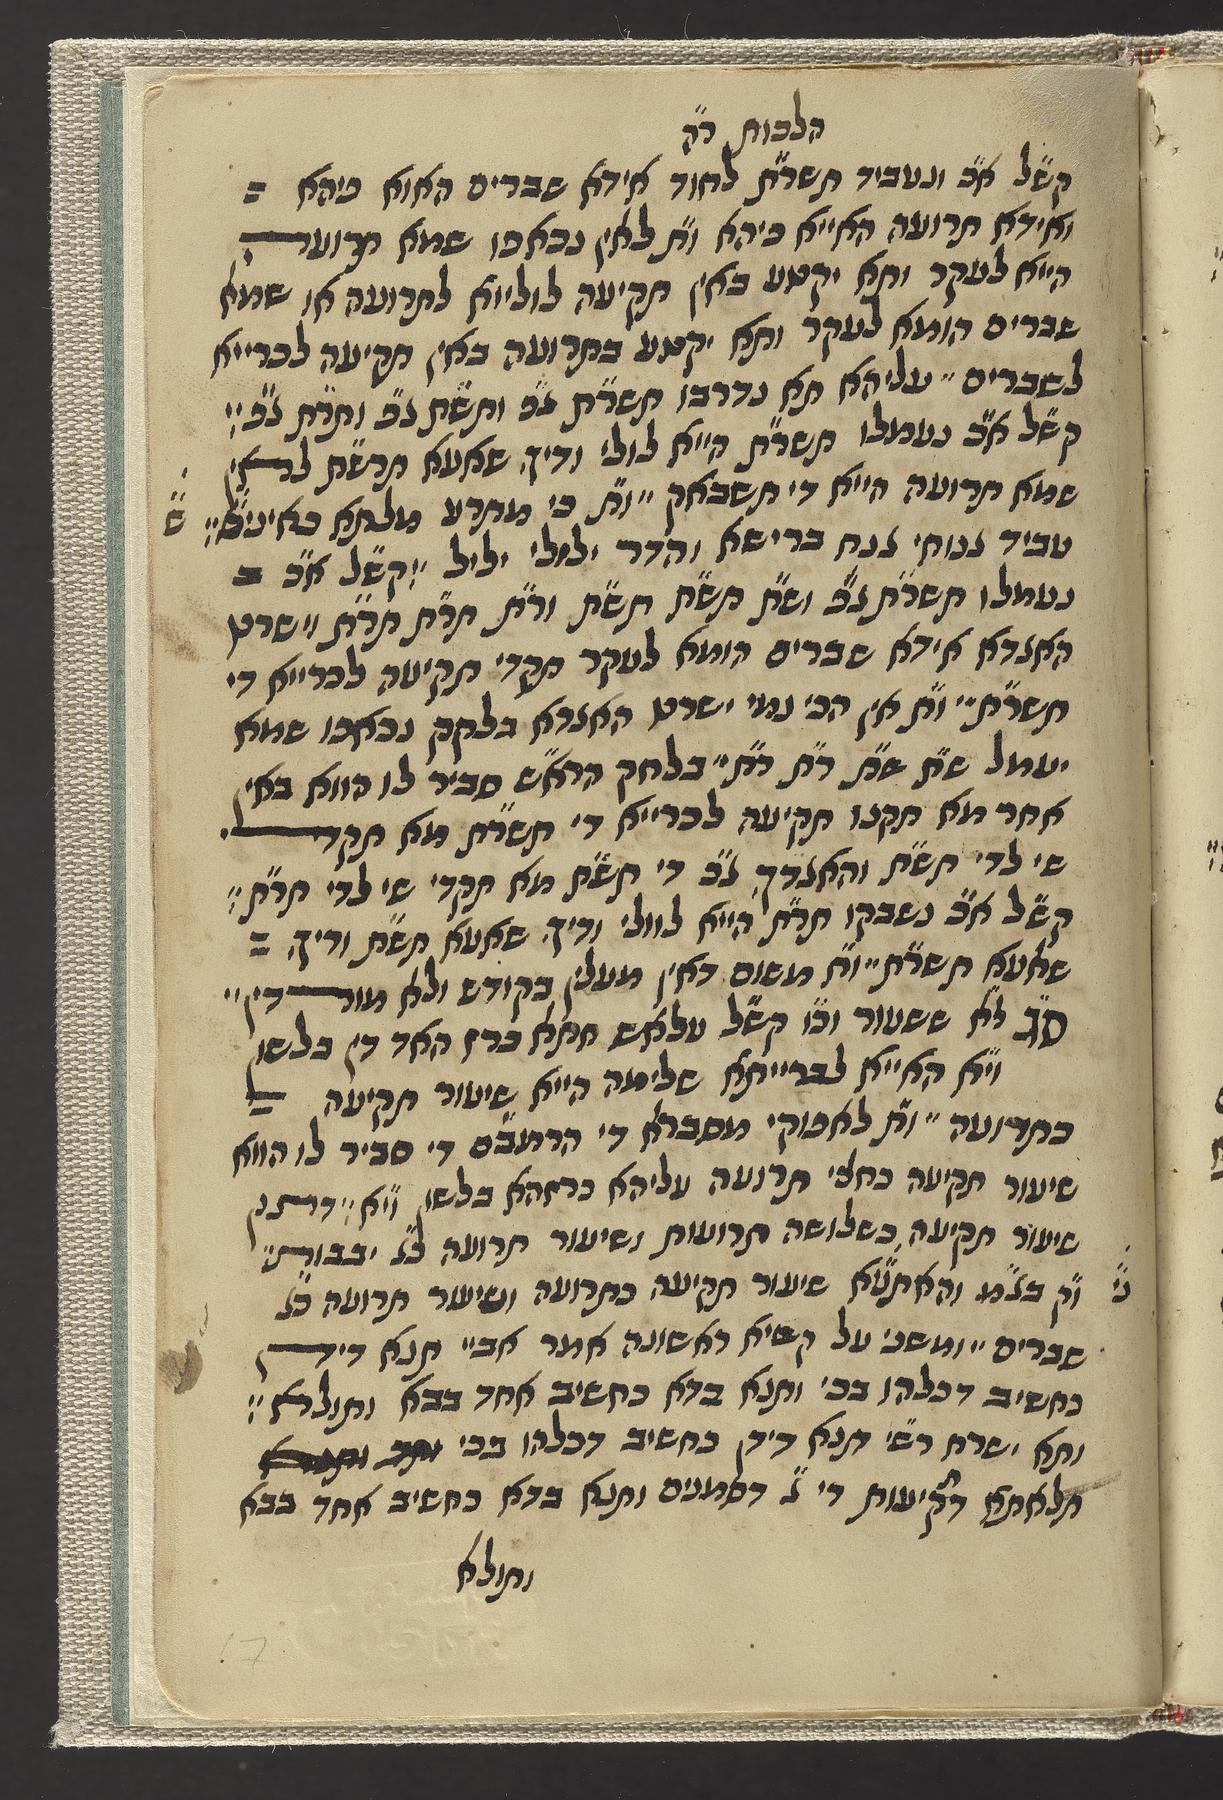 הלכות ר״ה
קש״ל א״כ ונעביד תשר״ת לחוד אידא שברים האוא פיהא =
ואידא תרועה האייא פיהא ו״ת לאין נכאפו שמא תרועה
הייא לעקר ותא יקטע באין תקיעה לוליוא לתרועה או שמא
שברים הומא לעקר ותא יקטע בתרועה באין תקיעה לכרייא
לשברים״ עליהא תא נדרבו תשר״ת ג״פ ותש״ת ג״פ ותר״ת ג״פ״:
קש״ל א״כ נעמלו תשר״ת הייא לולי ודיך שאעא תרש״ת לראין
שמא תרועה הייא די תשבאק״ ו״ת כי מתרע מלתא באינים״:
עביד גנוחי גנח ברישא והדר ילולי יליל״: קש״ל א״כ
נעמלו תשר״ת ג״פ וש״ת תש״ת תש״ת ור״ת תר״ת תר״ת וישרט
האגדא אידא שברים הומא לעקר תקדי תקיעה לכרייא די
תשר״ת״ ו״ת אין הכי נמי ישרט האגדא בלקק נכאפו שמא
יעמל ש״ת ש״ת ר״ת ר״ת״ בלחק הרא״ש סביר לו הווא באין
אחר מא תקנו תקיעה לכרייא די תשר״ת מא תקדי
שי לדי תש״ת והאגדך ג״פ די תש״ת מא תקדי שי לדי תר״ת״:
קש״ל א״כ נשבקו תר״ת הייא לוולי ודיך שאעא תש״ת ודיך =
שאעא תשר״ת״ ו״ת משום דאין מעלין בקודש ולא מורדין״
ס״ג ל״א ששעור וכ״ו קש״ל עלאש חתא ברז האד דין בלשון
וי״א האייא לברייתא שלימה הייא שיעור תקיעה
כתרועה״ ו״ת לאפוקי מסברא די הרמב״ם די סביר לו הווא
שיעור תקיעה כחצי תרועה עליהא ברזהא בלשון וי״א״: דתנן
שיעור תקיעה כשלושה תרועות ושיעור תרועה כ״ג יבבות״
ו״ק בג״מ והאתנ״א שיעור תקיעה כתרועה ושיעור תרועה כ״ג
שברים״ ומשני על קשיא ראשונה אמר אביי תנא דידן
כחשיב דכלהו בבי ותנא ברא כחשיב אחד בבא ותולא״:
ותא ישרח רש״י תנא דידן כחשיב דכלהו בבי
תלאתא דתקיעות די ג׳ דסמנים ותנא ברא כחשיב אחד בבא
ותולא